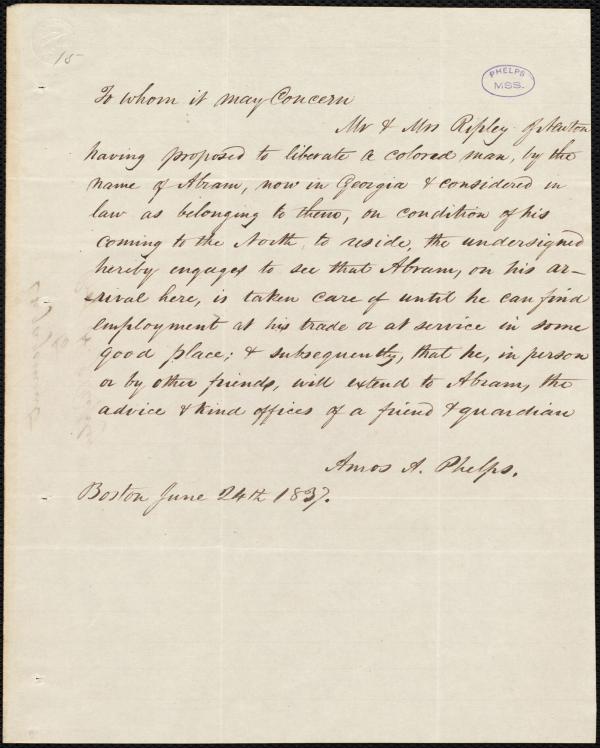 15
PHELPS
MSS.
To whom it may Concern
Mr & Mrs Ripley of Newton
having proposed to liberate a colored man, by the
name of Abram, now in Georgia & considered in
law as belonging to them, on condition of his
coming to the North to reside, the undersigned
hereby engages to see that Abram, on his ar-
-rival here, is taken care of until he can find
employment at his trade or at service in some
good place; & subsequently, that he, in person
or by other friends, will extend to Abram, the
advice & kind offices of a friend & guardian
Amos A. Phelps.
Boston June 24th 1837.